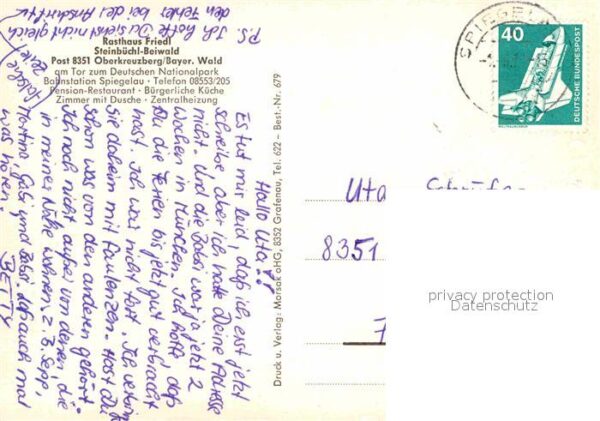 Rasthaus Friedl
Steinbüchl-Beiwald
Post 8351 Oberkreuzberg/Bayer. Wald
am Tor zum Deutschen Nationalpark
Bahnstation Spiegelau - Telefon 08553/205
Pension-Restaurant · Bürgerliche Küche
Zimmer mit Dusche · Zentralheizung
Hallo Uta!
Es tut mir leid, daß ich erst jetzt
schreibe aber ich hatte Deine Adresse
nicht. Und die Babsi war ja jetzt 2
Wochen in München. Ich hoffe, daß
Du die Ferien bis jetzt gut verbracht
hast. Ich war nicht fort. Ich verbring
sie daheim mit Faulenzen. Hast Du
schon was von den anderen gehört
Ich noch nicht außer von denen, die
in meiner Nähe wohnen, z. B. Sepp,
Martina, Gabi und Babsi. Laß auch mal
was hören!
BETTY
P.S. Ich hoffe Du siehst nicht gleich
den Fehler bei der Anschrift
falsche Zeile
Druck u. Verlag: Morsak oHG, 8352 Grafenau, Tel. 622 - Best.-Nr. 679
SPIEGELAU
40
DEUTSCHE BUNDESPOST
WELTRAUMLABOR
Uta
8351
privacy protection
Datenschutz